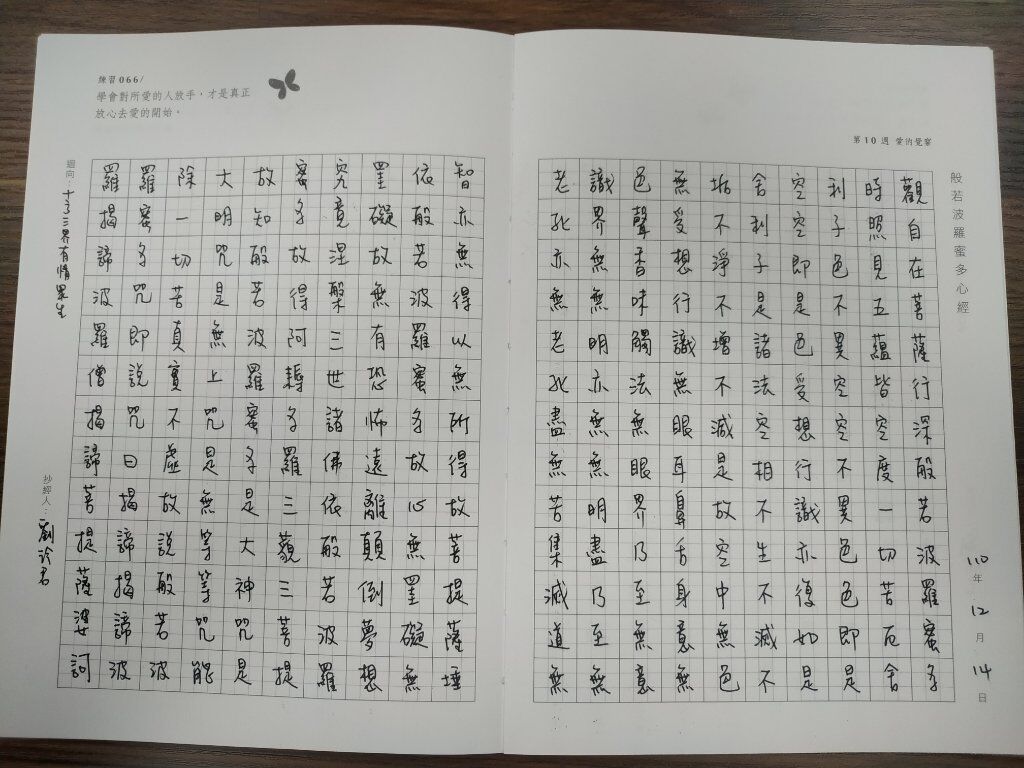 第10週 愛的覺察
般若波羅蜜多心經
110年12月14日
觀自在菩薩行深般若波羅蜜多
時照見五蘊皆空度一切苦厄舍
利子色不異空空不異色色即是
空空即是色受想行識亦復如是
舍利子是諸法空相不生不滅不
垢不淨不增不減是故空中無色
無受想行識無眼耳鼻舌身意無
色聲香味觸法無眼界乃至無意
識界無無明亦無無明盡乃至無
老死亦無老死盡無苦集滅道無
練習066/
學會對所愛的人放手，才是真正
放心去愛的開始。
智亦無得以無所得故菩提薩埵
依般若波羅蜜多故心無罣礙無
罣礙故無有恐怖遠離顛倒夢想
究竟涅槃三世諸佛依般若波羅
蜜多故得阿耨多羅三藐三菩提
故知般若波羅蜜多是大神咒是
大明咒是無上咒是無等等咒能
除一切苦真實不虛故說般若波
羅蜜多咒即說咒曰揭諦揭諦波
羅揭諦波羅僧揭諦菩提薩婆訶
迴向：十方三界有情眾生
抄經人：劉